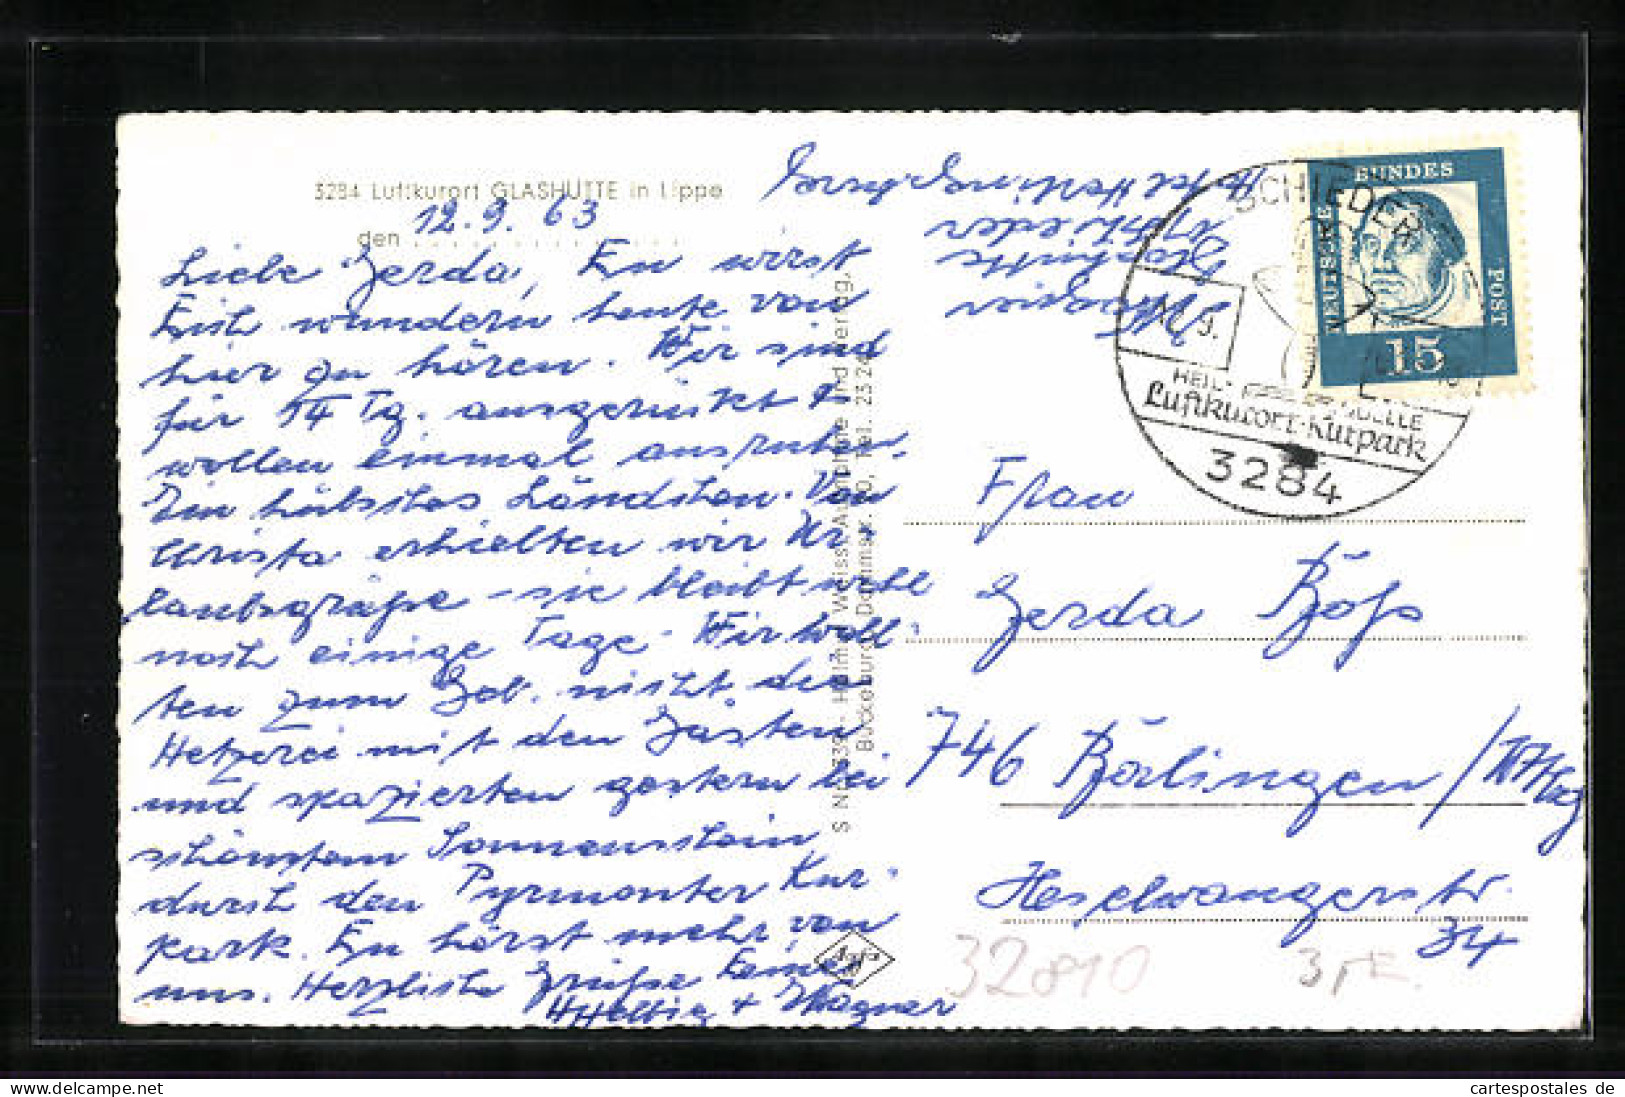 3284 Luftkurort GLASHÜTTE in Lippe
den 12.9.63
Liebe Gerda, Du wirst
Dich wundern heute von
hier zu hören. Wir sind
für 14 Tg. ausgerückt &
wollen einmal ausruhen.
Ein hübsches Ländchen. Von
Christa erhielten wir Ur-
laubsgrüße - sie bleibt wohl
noch einige Tage. Wir woll-
ten zum Geb. nicht die
Hetzerei mit den Gästen
und spazierten gestern bei
schönstem Sonnenschein
durch den Pyrmonter Kur-
park. Du hörst mehr von
uns. Herzliche Grüße Deine
Helbig + Wagner
Hotel
Schieder
Glashütte
S Nr.
Bückeburg, Dammstr. Tel. 23 26
Agfa
SCHIEDER
9.
HEIL- QUELLE
Luftkurort·Kurpark
3284
DEUTSCHE
BUNDES
POST
15
Frau
Gerda Böß
746 Balingen / Wttbg
Heselwangerstr.
34
32810
cartespostales de